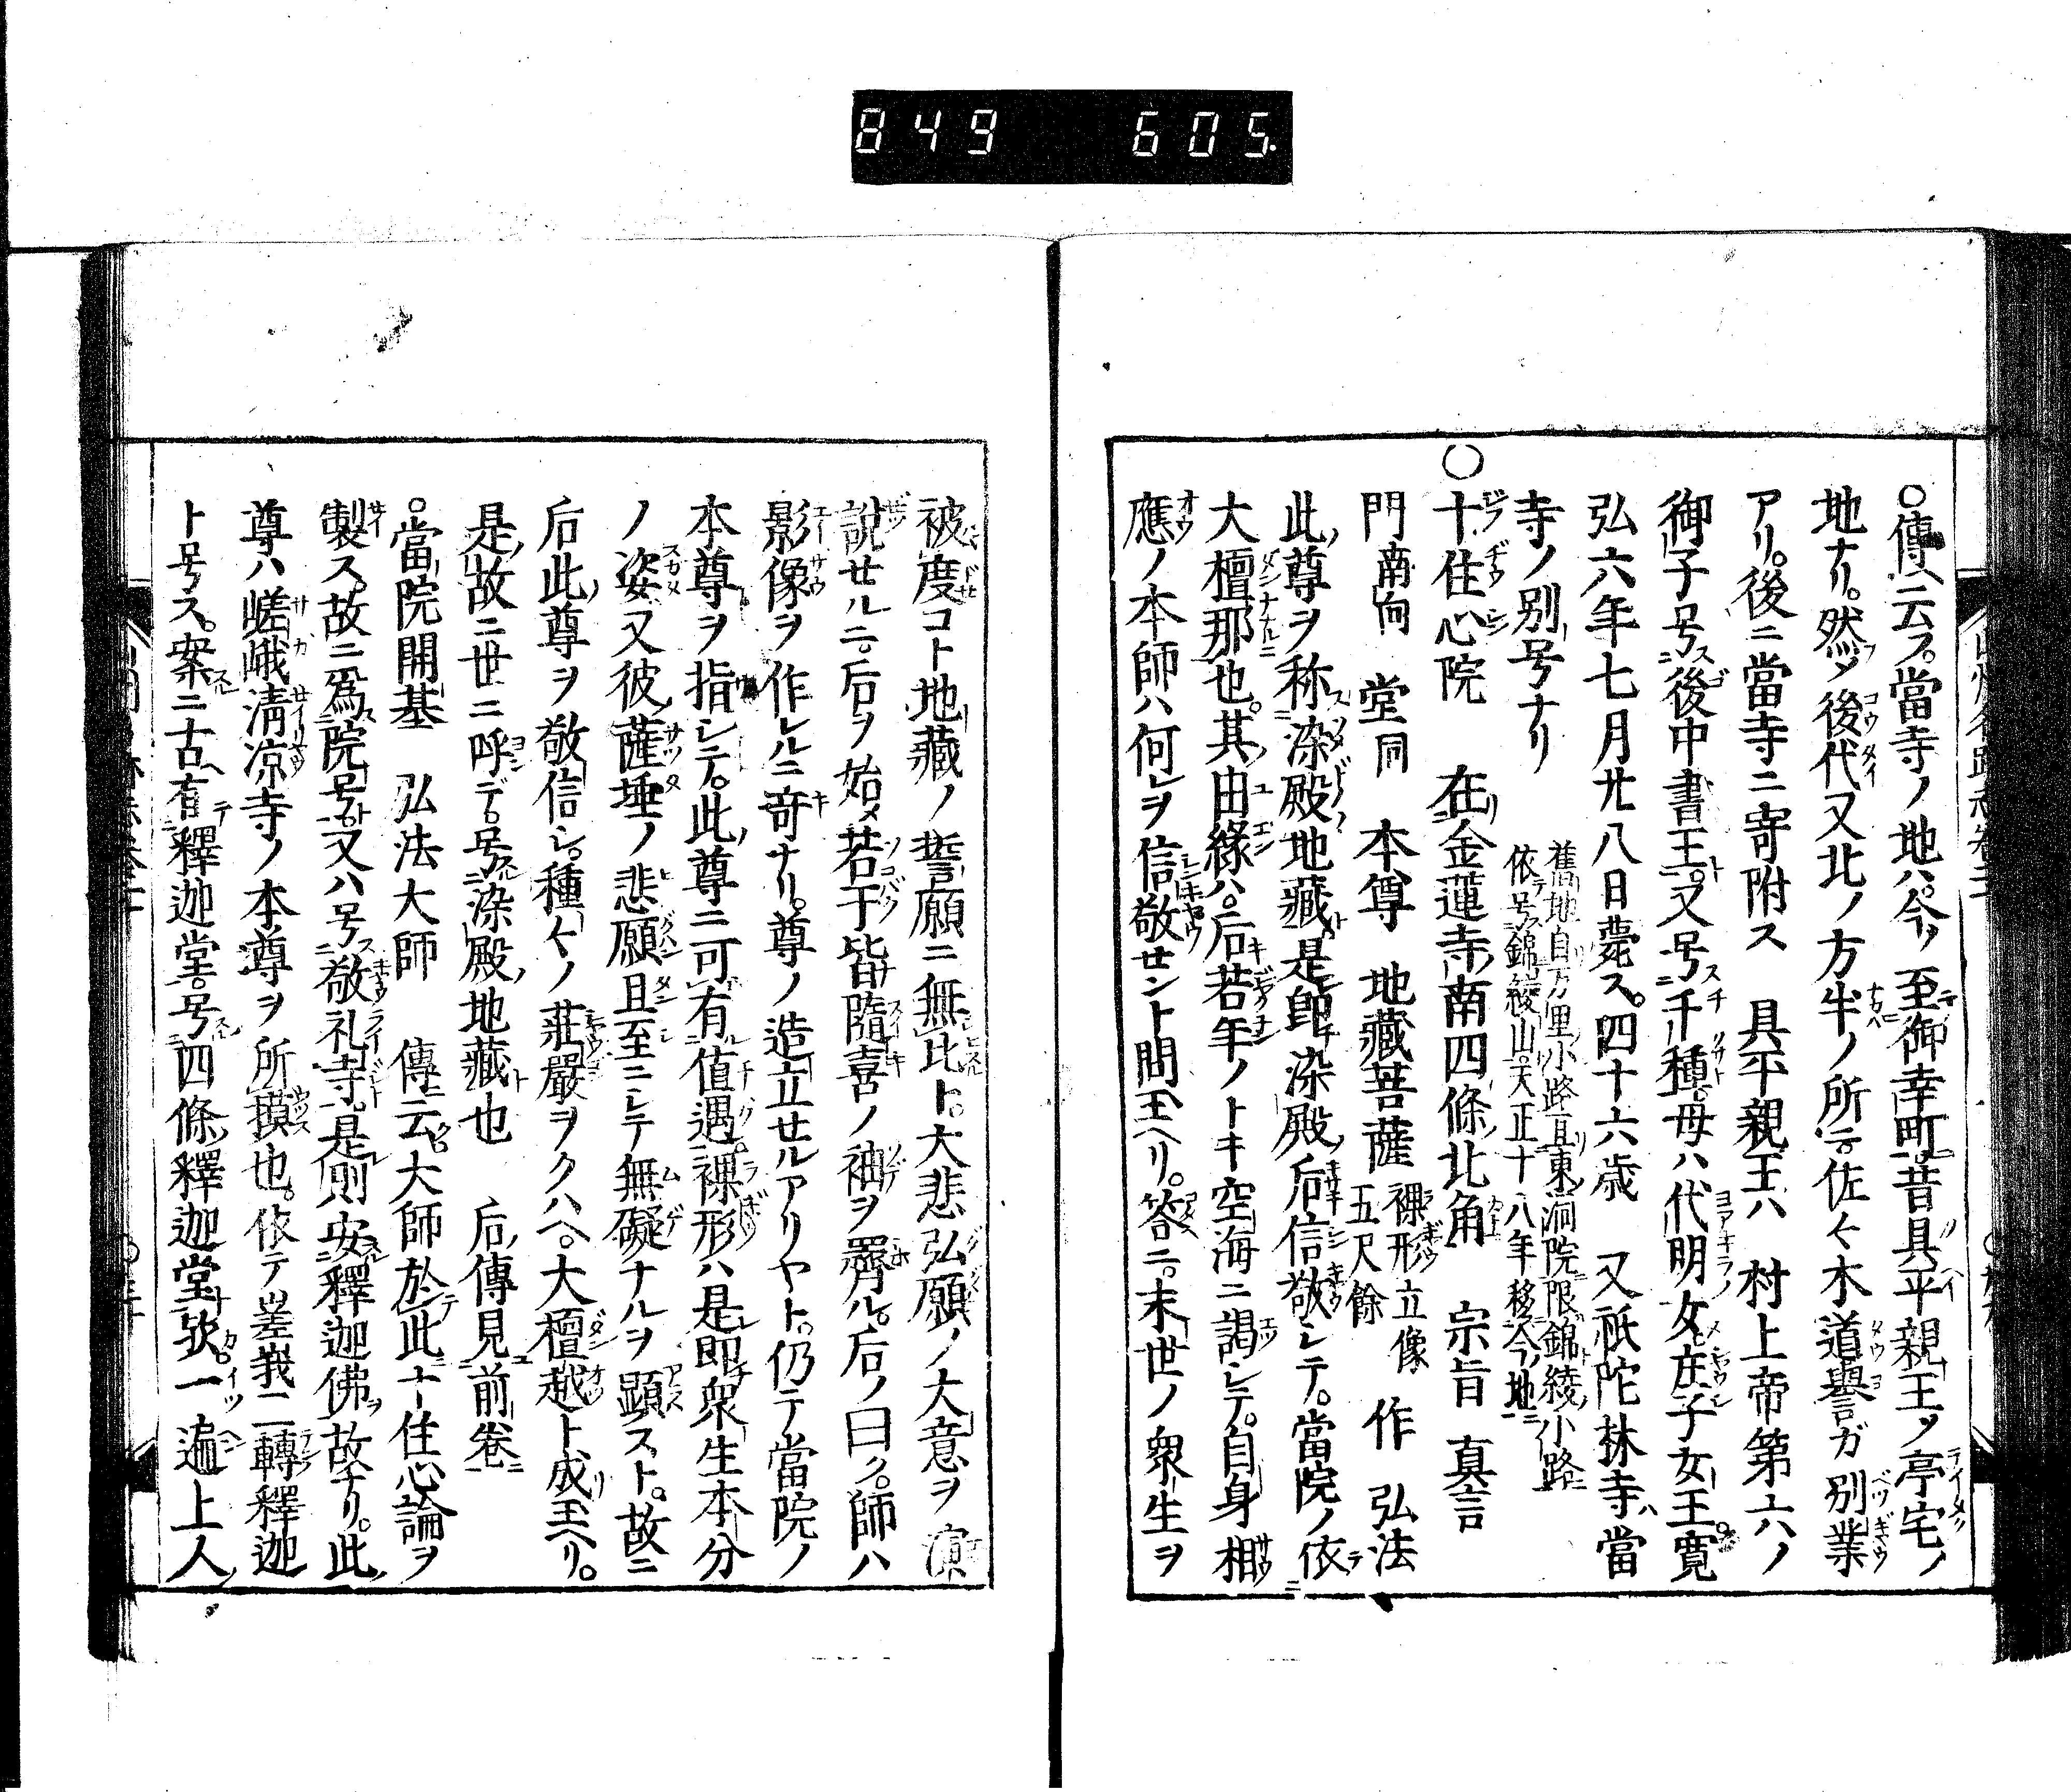 849 605.
○傳ヘ云フ。當寺ノ地ハ。今ノ至御幸町。昔具平親王ノ亭宅ノ
地ナリ。然メ後代又北ノ方半ノ所ニテ佐々木道譽ガ別業
アリ。後ニ當寺ニ寄附ス 具平親王ハ 村上帝第六ノ
御子号ス後中書王ト。又号ス千種ト母ハ代明女ヒ庄子女王。寛
弘六年七月廿八日薨ス。四十六歳 又祇陀林寺ハ當
寺ノ別号ナリ
舊地自万里小路亘東洞院限錦綾小路
依号錦綾山。天正十八年移今地
○十住心院 在金蓮寺南四條北角 宗旨 真言
門南向 堂同 本尊 地藏菩薩 裸形立像 五尺餘 作 弘法
此ノ尊ヲ称染殿地藏ト是即染殿ノ后信敬シテ。當院ノ依テ
大檀那也。其ノ由緣ハ。后若年ノトキ空海ニ謁シテ。自身相
應ノ本師ハ何レヲ信敬セント問王ヘリ。答ニ。末世ノ衆生ヲ
被度コト地藏ノ誓願ニ無比ト。大悲弘願ノ大意ヲ演
說セルニ。后ヲ始メ若干皆隨喜ノ袖ヲ霑ル。后ノ曰ク。師ハ
影像ヲ作レルニ奇ナリ。尊ノ造立セルアリヤト。仍テ當院ノ
本尊ヲ指シテ。此ノ尊ニ可有値遇裸形ハ是レ即衆生本分
ノ姿又彼ノ薩埵ノ悲願且至ニシテ無礙ナルヲ顕スト。故ニ
后此ノ尊ヲ敬信シ。種々ノ莊嚴ヲクハヘ。大檀越ト成リ王ヘリ。
是ノ故ニ世ニ呼デ。号染殿ノ地藏ト也 后ノ傳見前卷
○當院開基 弘法大師 傳云大師於此十住心論ヲ
製ス。故ニ爲院号ト。又ハ号ス敬礼寺ト。是レ則安釋迦佛ヲ故ナリ。此ノ
尊ハ嵯峨淸凉寺ノ本尊ヲ所摸也。依テ嵯峩二轉釋迦
ト号ス。案ニ古ヘ有テ釋迦堂。号四條ノ釋迦堂ト歟。一遍上人